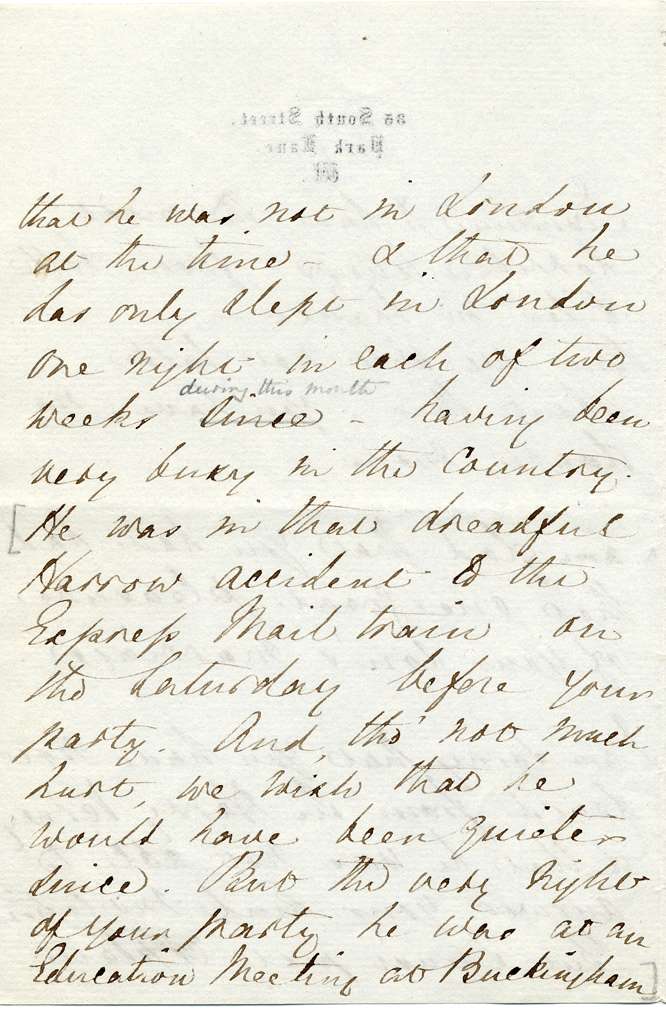 35 South Street,
Park Lane,
W.
that he was not in London
at the time – & that he
has only slept in London
one night in each of two
during this month
weeks since – having been
very busy in the Country.
[He was in that dreadful
Harrow accident to the
Express Mail train on
the Saturday before your
party. And, tho' not much
hurt, we wish that he
would have been quieter
since. But the very night
of your party he was at an
Education Meeting at Buckingham]